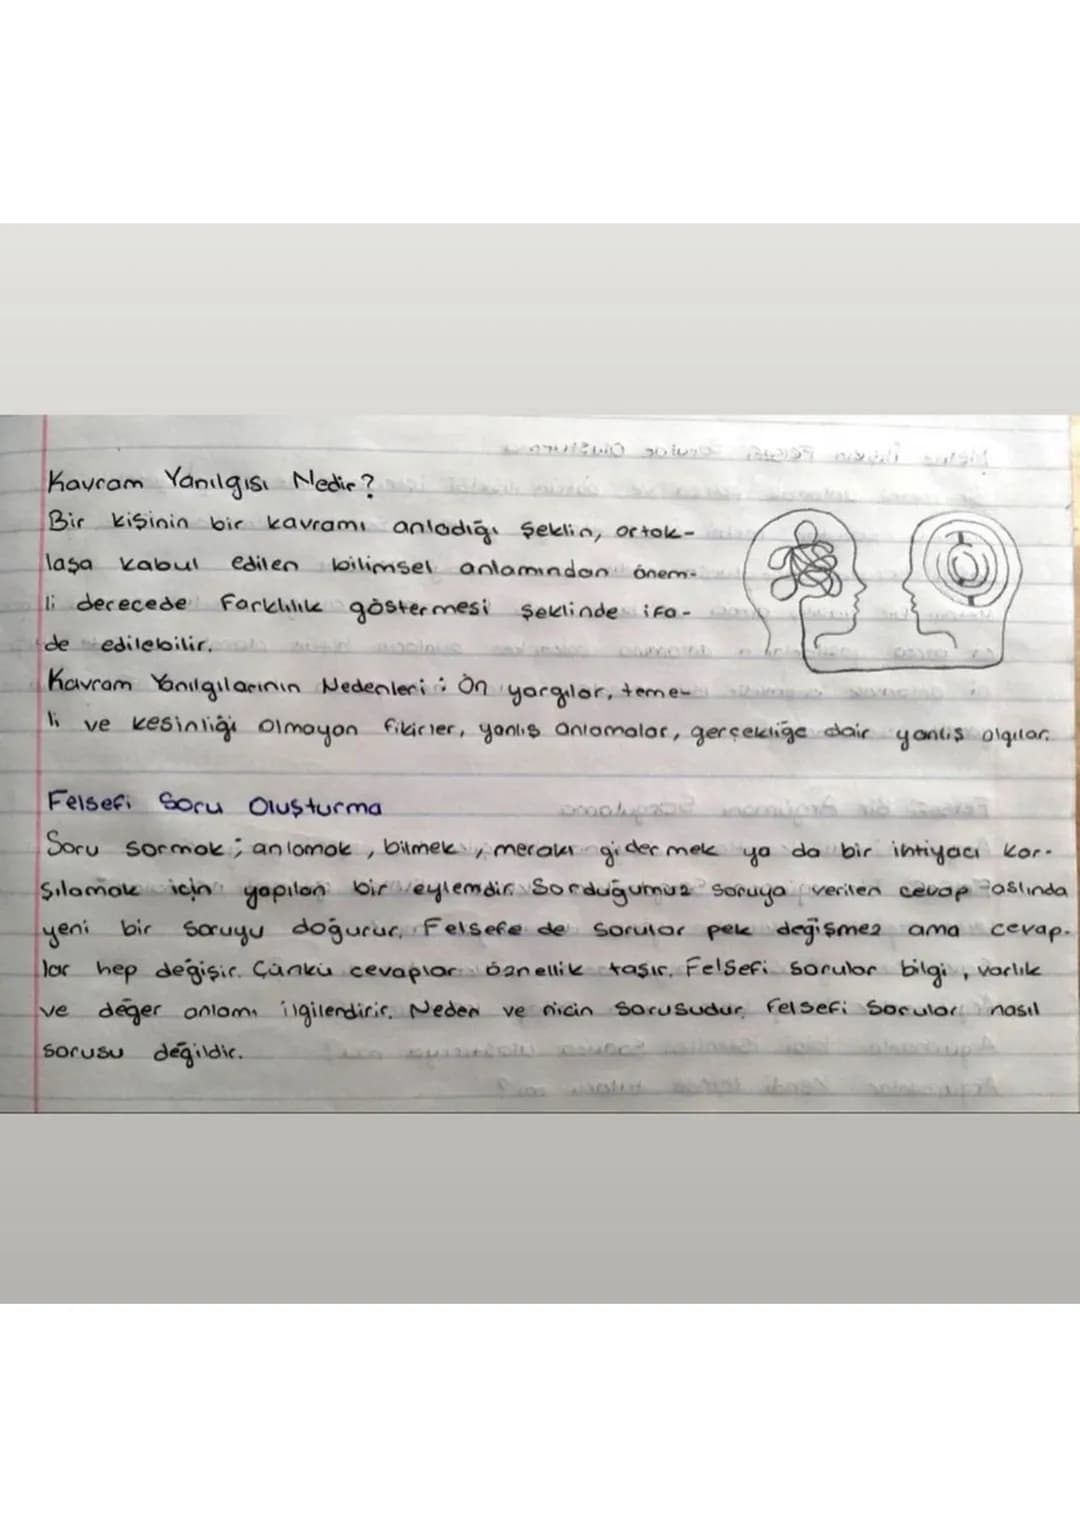 Kavram Yanılgısı Nedir?
Bir kişinin bir kavramı anladığı şeklin, ortak-
laşa kabul edilen bilimsel anlamından önem-
li derecede farklılık göstermesi şeklinde ifa-
de edilebilir.
Kavram Yanılgılarının Nedenleri: Ön yargılar, teme-
li ve kesinliği olmayan fikirler, yanlış anlamalar, gerçekliğe dair yanlış algılar.
Felsefi Soru Oluşturma
Soru sormak; anlamak, bilmek, merakı gidermek ya da bir ihtiyacı kar-
şılamak için yapılan bir eylemdir. Sorduğumuz soruya verilen cevap aslında
yeni bir soruyu doğurur. Felsefe de sorular pek değişmez ama cevap-
lar hep değişir. Çünkü cevaplar öznellik taşır. Felsefi sorular bilgi, varlık
ve değer anlamı ilgilendirir. Neden ve niçin sorusudur. Felsefi Sorular nasıl
sorusu değildir.